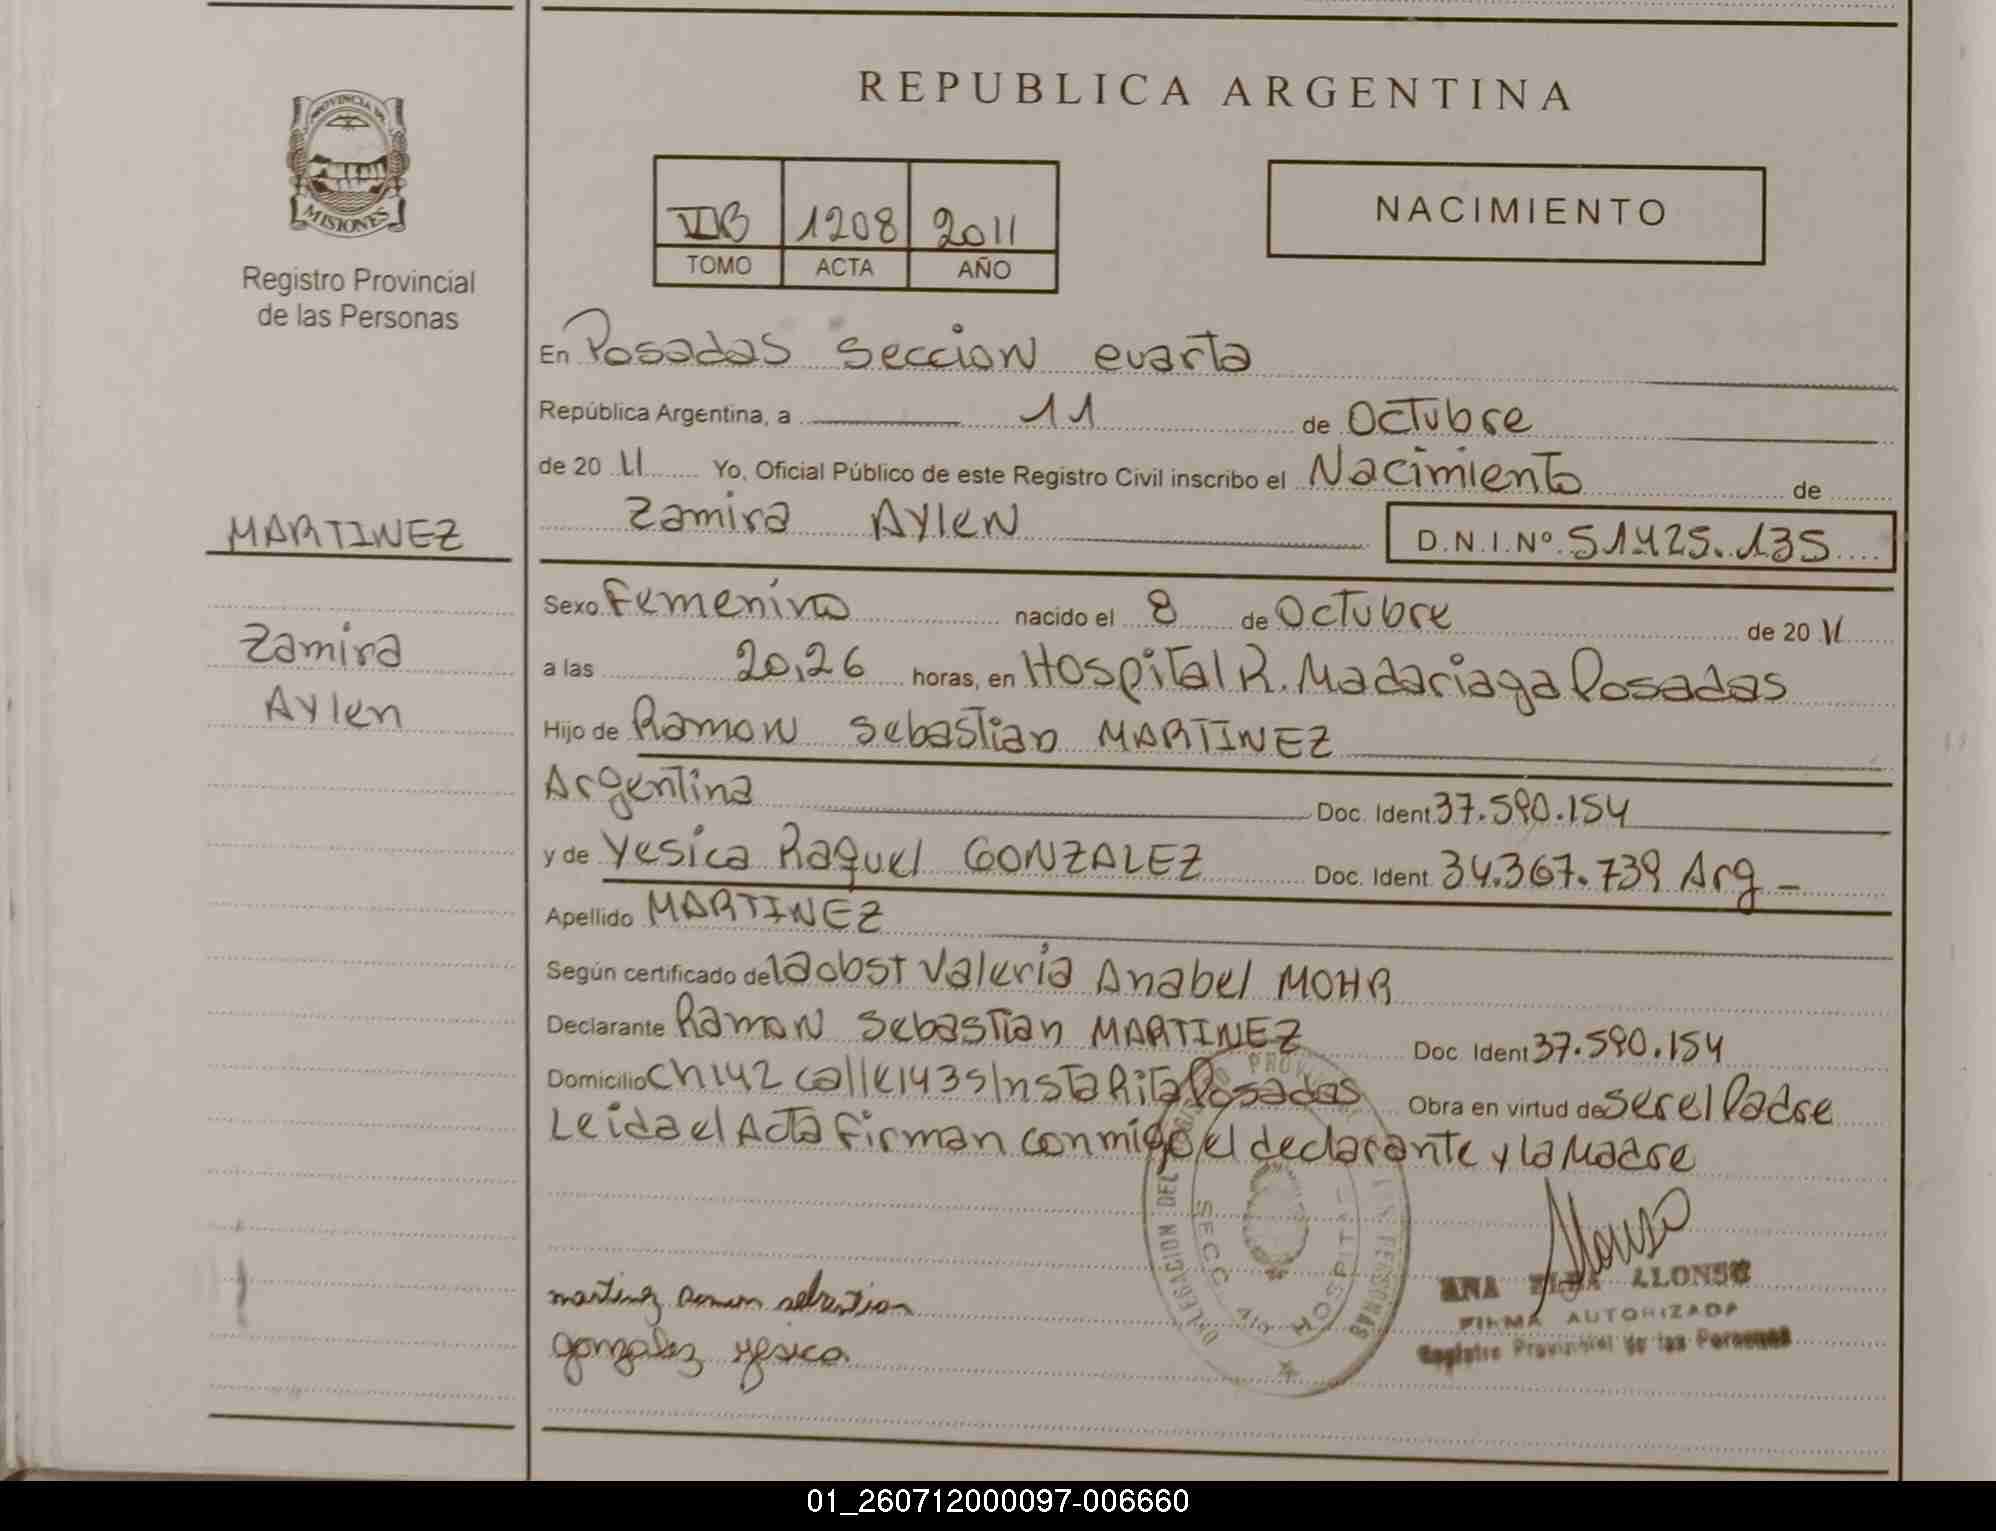 REPUBLICA ARGENTINA
PROVINCIA DE
MISIONES
Registro Provincial
de las Personas
NACIMIENTO
VIIB 1208 2011
TOMO ACTA AÑO
En Posadas Seccion cuarta
República Argentina, a 11 de Octubre
de 20 11 Yo, Oficial Público de este Registro Civil inscribo el Nacimiento de
Zamira Aylen D.N.I.Nº 51.425.135
MARTINEZ
Zamira
Aylen
Sexo Femenino nacido el 8 de Octubre de 20 11
a las 20,26 horas, en Hospital R. Madariaga Posadas
Hijo de Ramon Sebastian MARTINEZ
Argentina Doc. Ident. 37.590.154
y de Yesica Raquel GONZALEZ Doc. Ident. 34.367.739 Arg -
Apellido MARTINEZ
Según certificado de la obst Valeria Anabel MOHR
Declarante Ramon Sebastian MARTINEZ Doc Ident 37.590.154
Domicilio Ch 142 calle 143 s/n Sta Rita Posadas Obra en virtud de ser el Padre
Leida el Acta firman conmigo el declarante y la Madre
DELEGACION DEL PROV PERSONAS
SECC. 4ta HOSPITAL
martinez Ramon sebastian
gonzalez yesica
Alonso
ANA ELBA ALONSO
FIRMA AUTORIZADA
Registro Provincial de las Personas
01_260712000097-006660